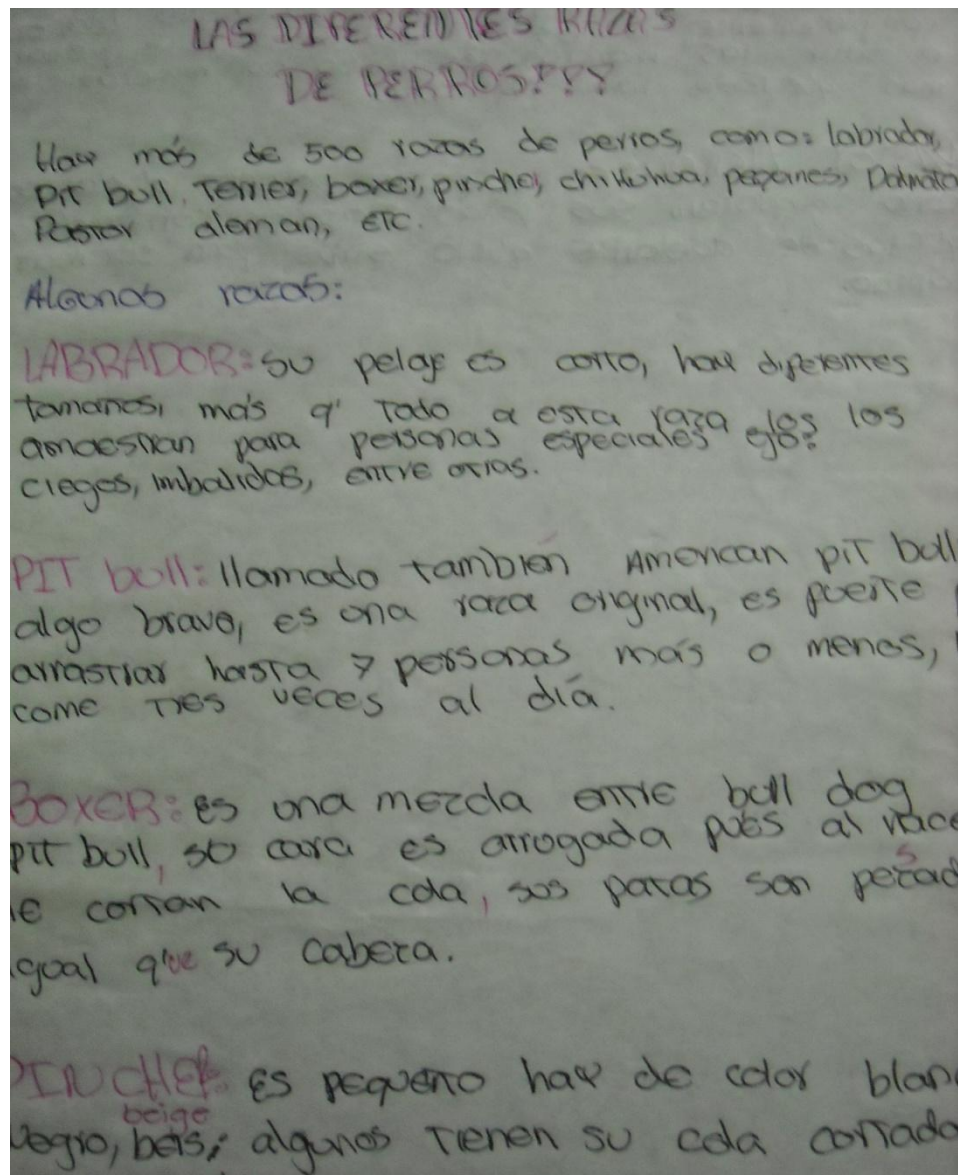 LAS DIFERENTES RAZAS
DE PERROS???
Hay más de 500 razas de perros, como: labrador,
Pit bull, Terrier, boxer, pincher, chikohua, pequines, Dalmata
Pastor aleman, ETC.
Algunas razas:
LABRADOR: su pelaje es corto, hay diferentes
tamanos, más q' todo a esta raza los
amaestran para personas especiales ejo: los
ciegos, imbalidos, entre otras.
PIT bull: llamado tambien American pit bull
algo bravo, es una raza original, es fuerte
arrastrar hasta 7 personas más o menos,
come tres veces al día.
BOXER: es una mezcla entre bull dog
pit bull, su cara es arrogada pues al nace
le cortan la cola, sus patas son pesad
igual que su cabeza.
PINCHER: es pequeño hay de color blan
beige
Negro, beis; algunos tienen su cola cortada